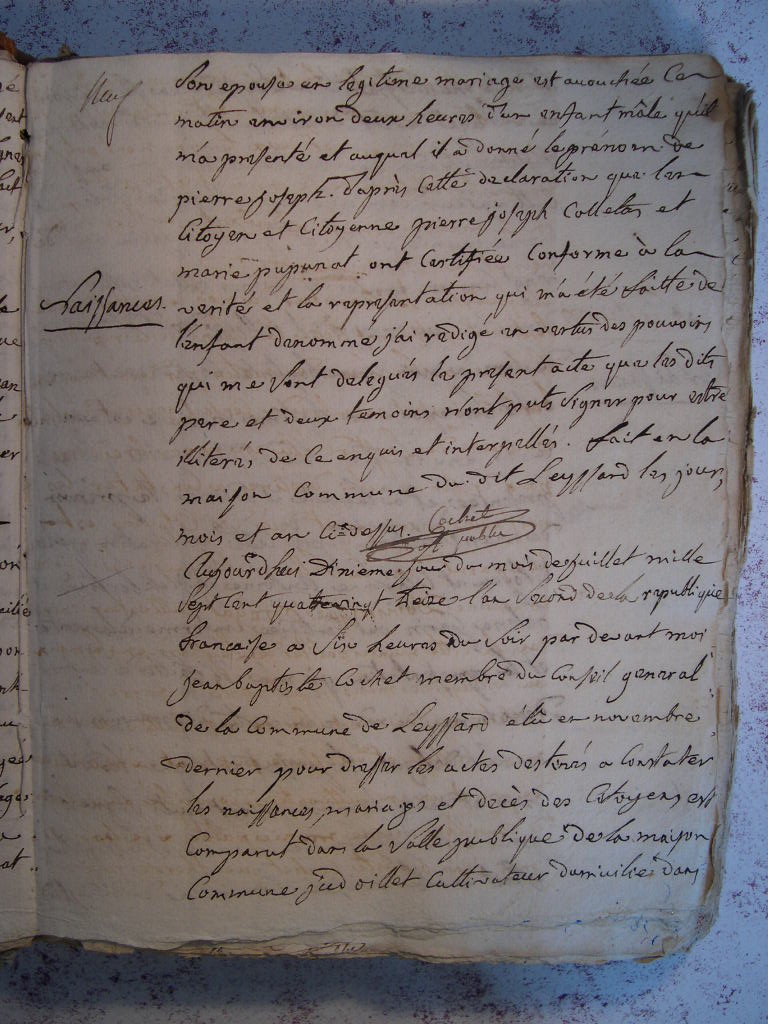 neuf
Son epouse en legitime mariage est acouchée Ce
matin environ deux heures d'un enfant mâle qu'il
m'a presenté et auquel il a donné le prénom de
pierre joseph. d'après Cette declaration que les
Citoyen et Citoyenne pierre joseph Colletas et
marie pupunat ont Certifiée Conforme à la
Naissances.
verité et la representation qui m'a été faitte de
l'enfant denommé j'ai redigé en vertus des pouvoirs
qui me sont delegués le present acte que les dits
pere et deux temoins n'ont puts signer pour estre
illiterés de Ce enquis et interpellés. fait en la
maison Commune du dit Leyssard les jour,
mois et an Ci-dessus. Cochet
of. public
Aujourd'hui Dixieme jour du mois de juillet mille
Sept Cent quatrevingt treize l'an Second de la republique
francaise a Six heures du Soir par devant moi
jean baptiste Cochet membre du Conseil general
de la Commune de Leyssard élû en novembre
dernier pour dresser les actes destinés a Constater
les naissances, mariages et decès des Citoyens est
Comparut dans la Salle publique de la maison
Commune jud oillet Cultivateur domicilié dans